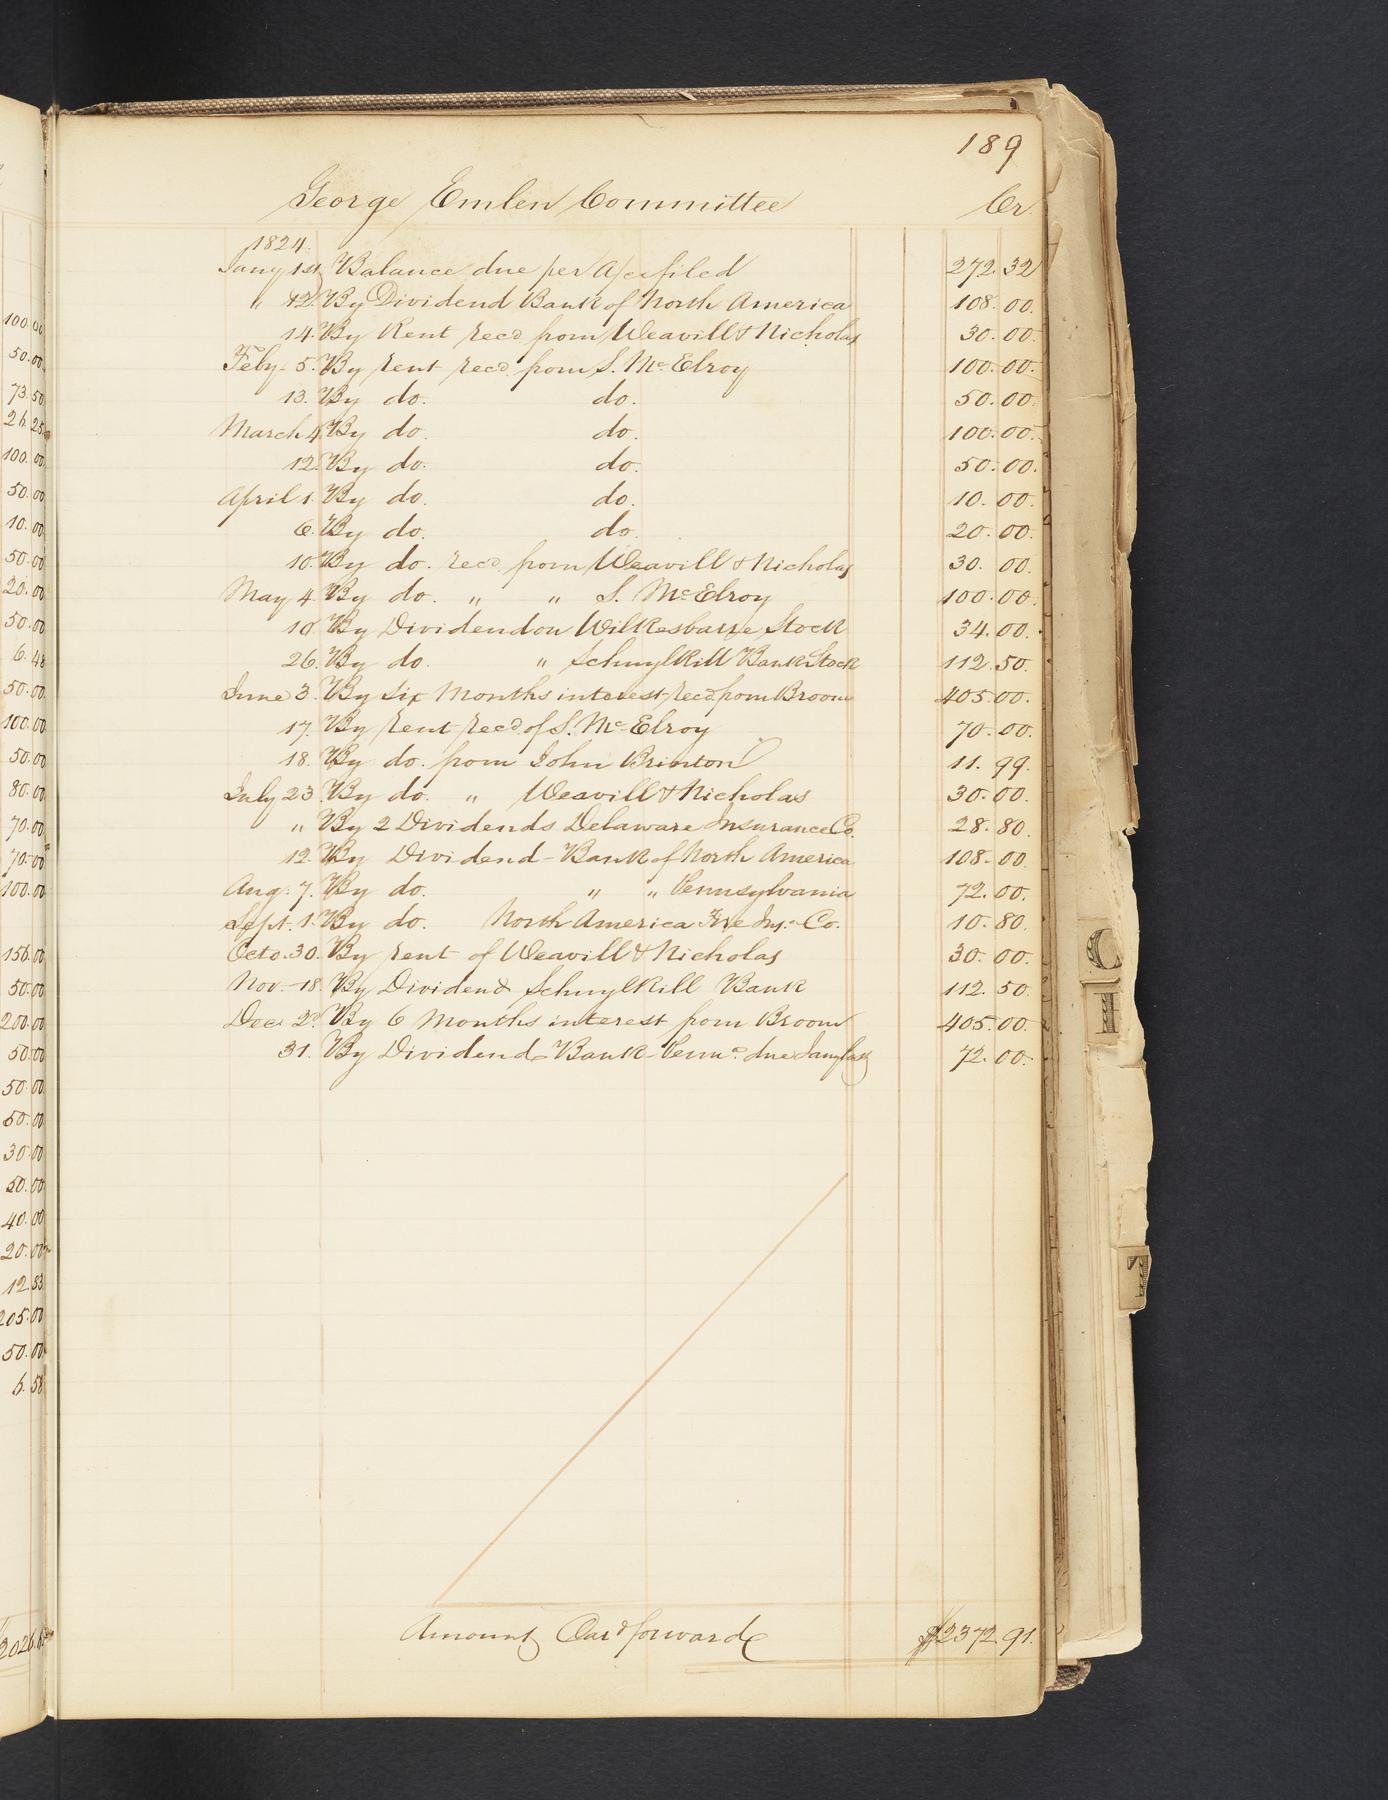 189
George Emlen Committee Cr.
1824.
Jany 1st Balance due per A/c filed 272.32
" 12. By Dividend Bank of North America 108.00.
14. By Rent recd from Weavill & Nicholas 30.00.
Feby. 5. By rent recd from S. McElroy 100.00.
13. By do. do. 50.00.
March 4 By do. do. 100.00.
12. By do. do. 50.00.
April 1. By do. do. 10.00.
6. By do. do. 20.00.
10. By do. recd from Weavill & Nicholas 30.00.
May 4. By do. " " S. McElroy 100.00.
10 By Dividend on Wilkesbarre Stock 34.00.
26. By do. " Schuylkill Bank Stock 112.50.
June 3. By six Months interest recd from Broom 405.00.
17. By rent recd of S. McElroy 70.00.
18. By do. from John Brinton 11.99.
July 23. By do. " Weavill & Nicholas 30.00.
" By 2 Dividends Delaware Insurance Co. 28.80.
12. By Dividend - Bank of North America 108.00
Aug: 7. By do. " " Pennsylvania 72.00.
Sept. 1. By do. North America Fire Ins. Co. 10.80.
Octo. 30. By rent of Weavill & Nicholas 30.00.
Nov. 18. By Dividend Schuylkill Bank 112.50.
Dec. 2d By 6 Months interest from Broom 405.00.
31. By Dividend Bank Penna. due July last 72.00.
Amount Card forward $2372.91.
100.00
50.00
73.50
26.25
100.00
50.00
10.00
50.00
20.00
50.00
6.48
50.00
100.00
50.00
80.00
70.00
70.00
100.00
156.00
50.00
200.00
50.00
50.00
50.00
30.00
50.00
40.00
20.00
12.83
205.00
50.00
6.58
C
I
T